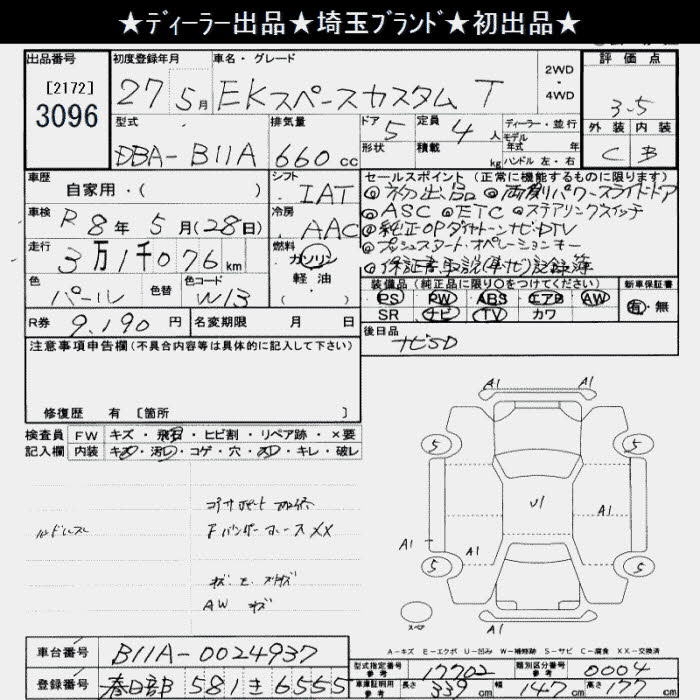 ★ディーラー出品★埼玉ブランド★初出品★
出品番号 初度登録年月 車名・グレード 2WD・4WD 評価点
[2172]
3096
27 5月 EKスペースカスタム T
3.5
型式 排気量 ドア 5 定員 4人 ディーラー・並行 外装 内装
形状 積載 kg モデル年式 年式 ハンドル 左・右
DBA-B11A 660cc
C B
車歴 自家用・( ) シフト IAT
セールスポイント (正常に機能するものに限ります)
◎初出品 ◎両側パワースライドドア
◎ASC ◎ETC ◎ステアリングスイッチ
◎純正OPダイヤトーンナビ・DTV
◎プッシュスタート・オペレーションキー
◎保証書取説(車ナビ)記録簿
車検 R8年5月(28日) 冷房 AAC
走行 3万1千076km 燃料 ガソリン 軽油( )
色 パール 色替 色コード W13
装備品(純正品に限り○をつけてください) 新車保証書
PS PW ABS エアB AW 有・無
SR ナビ TV カワ
R券 9,190円 名変期限 月 日
後日品 ナビSD
注意事項申告欄(不具合内容等は具体的に記入して下さい)
修復歴 有 [箇所 ]
検査員 FW キズ・飛石・ヒビ割・リペア跡・×要
記入欄 内装 キズ・汚レ・コゲ・穴・スレ・キレ・破レ
コアサポート
FバンパーホースXX
AW キズ
A1 A1
5 5
U1 A1
A1 A1
5 5
スペア
A1
A-キズ E-エクボ U-凹み W-補修跡 S-サビ C-腐食 XX-交換済
車台番号 B11A-0024937
登録番号 春日部 581 き 6555
型式指定番号 参考 17702 類別区分番号 参考 0004
車庫証明用 参考 長さ 339cm 幅 147cm 高さ 177cm